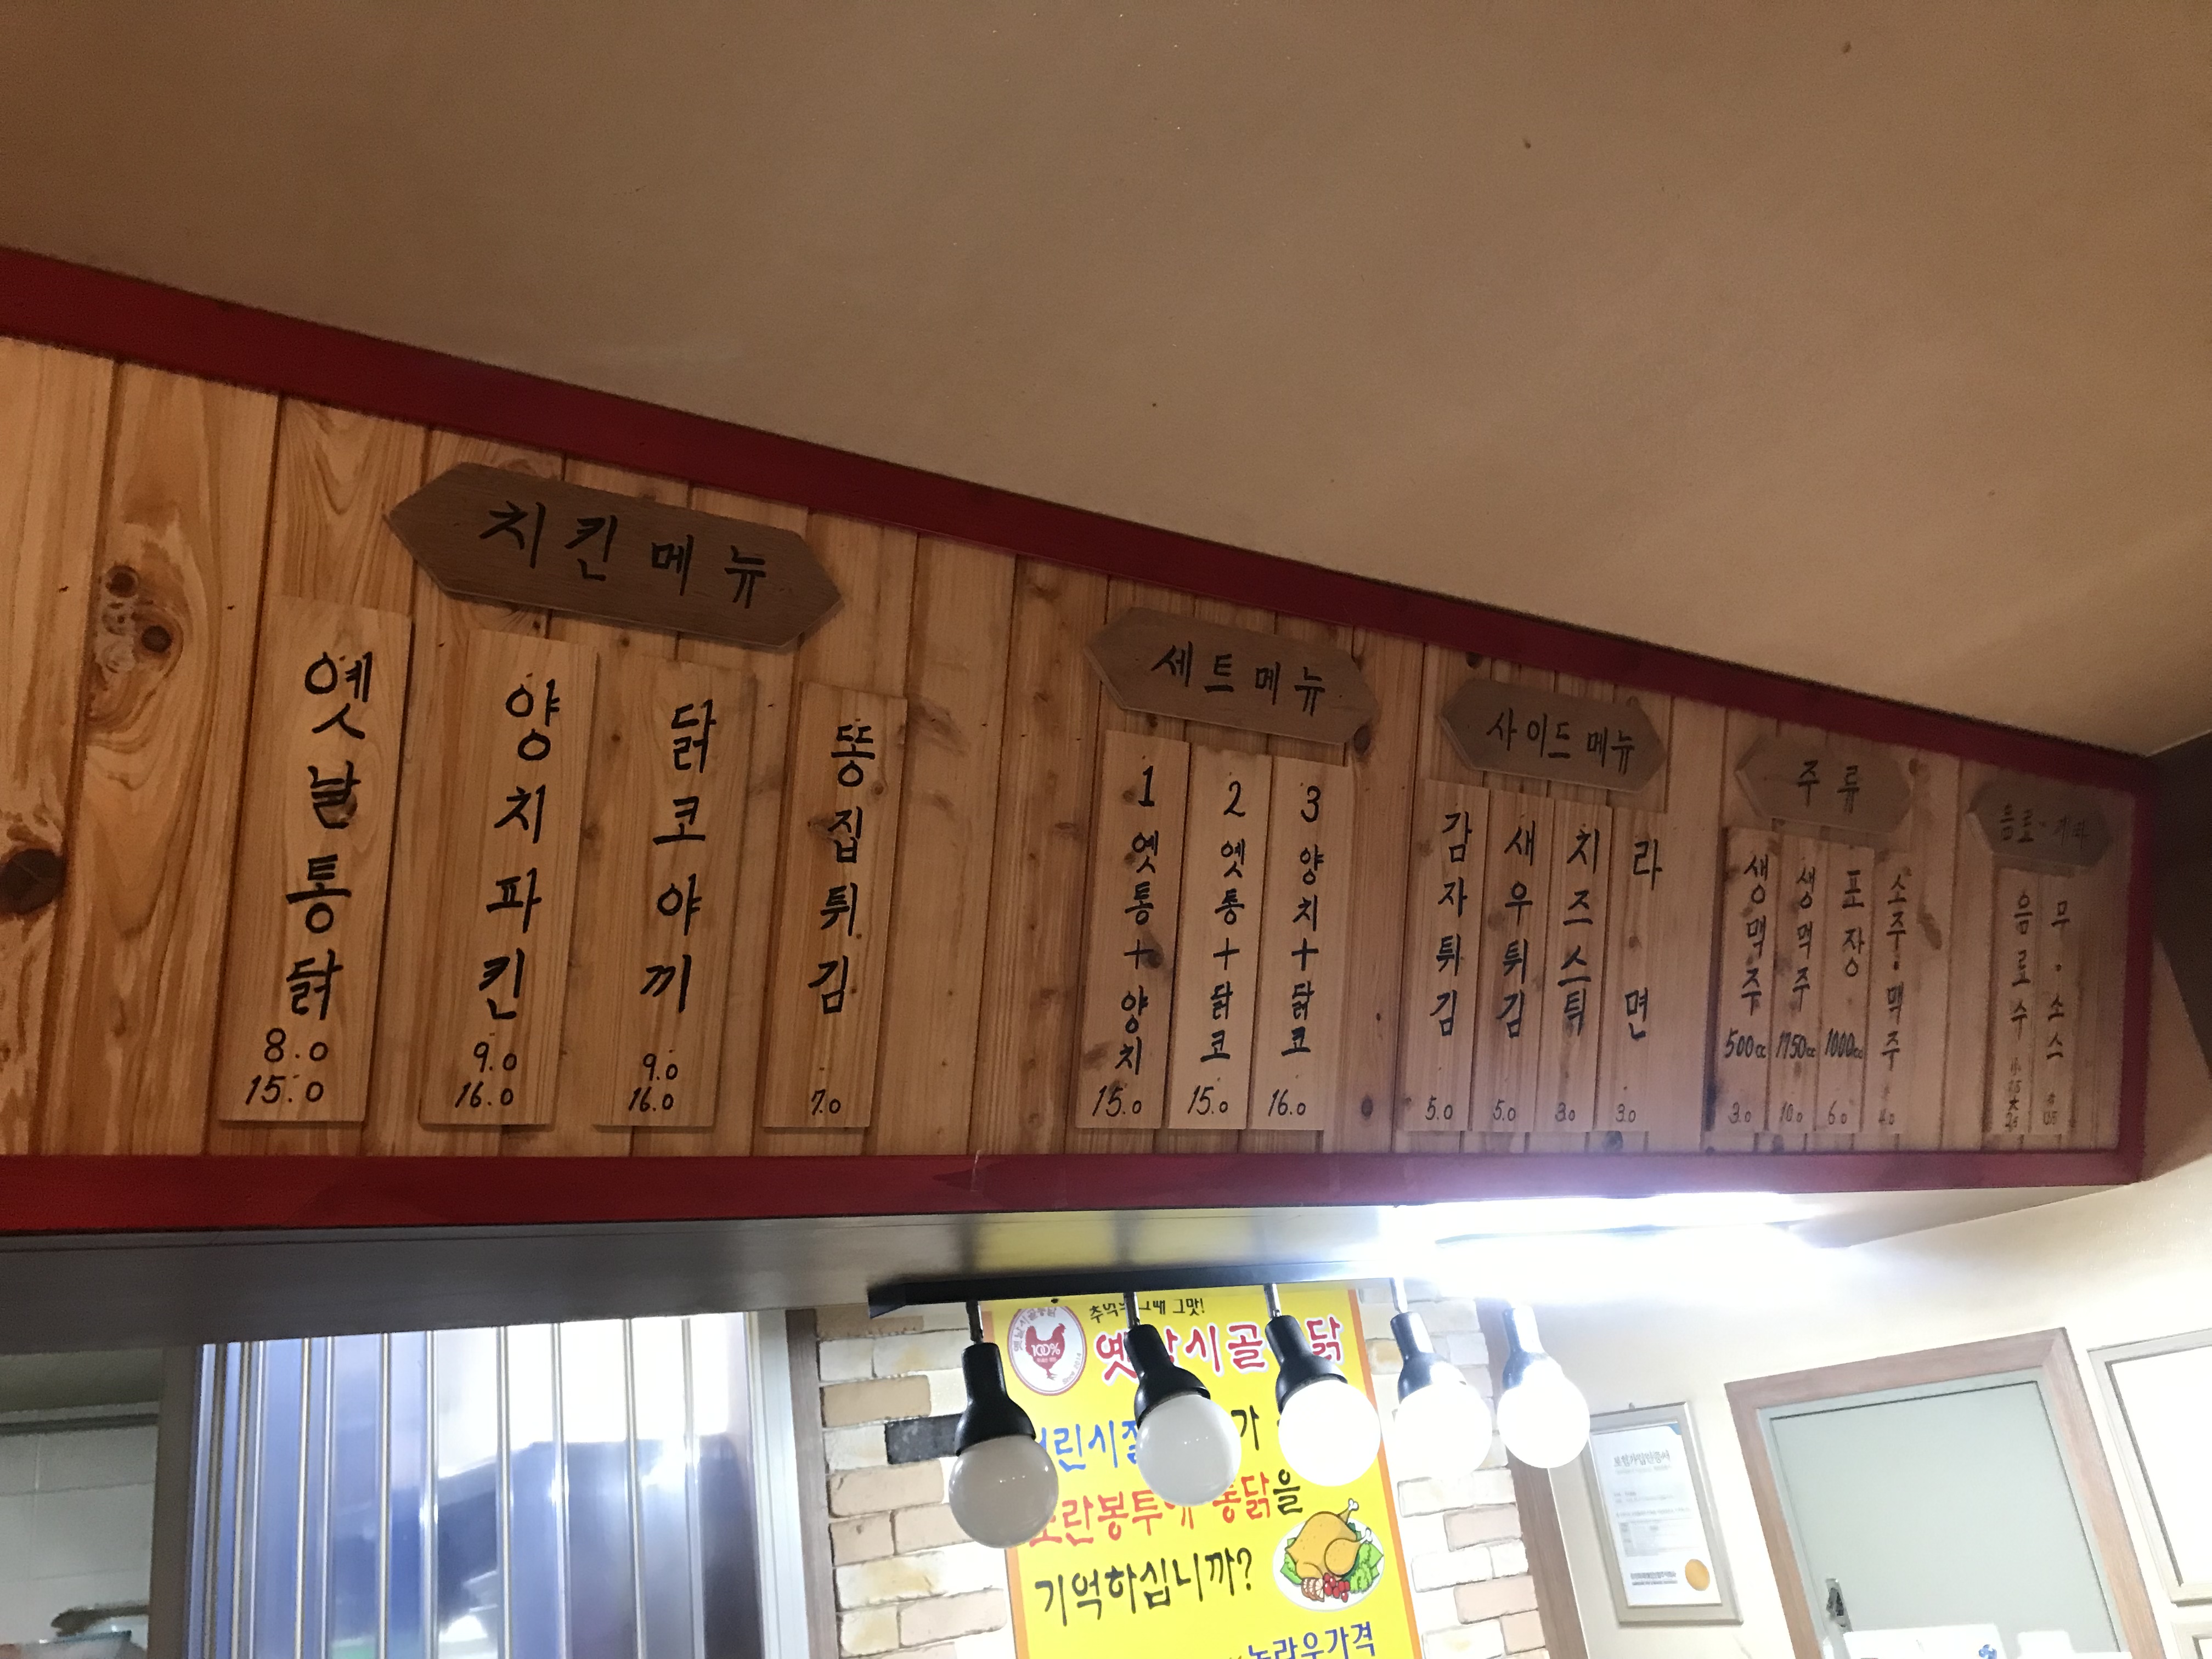 치킨메뉴
옛날통닭
8.0
15.0
양치파킨
9.0
16.0
닭코야끼
9.0
16.0
똥집튀김
7.0
세트메뉴
1 옛통+양치
15.0
2 옛통+닭코
15.0
3 양치+닭코
16.0
사이드메뉴
감자튀김
5.0
새우튀김
5.0
치즈스틱
3.0
라면
3.0
주류
생맥주
500cc
3.0
생맥주
1750cc
10.0
포장
1000cc
6.0
소주·맥주
4.0
음료·기타
음료수
무·소스
옛날시골
100%
그맛!
가
통닭을
기억하십니까?
놀라운가격
보험가입인증서